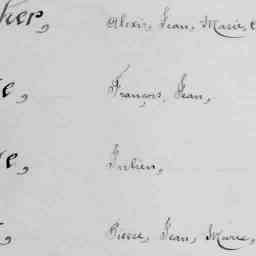 ker, Alexis, Jean, Marie,
e, François, Jean,
e, Julien,
Pierre, Jean, Marie,